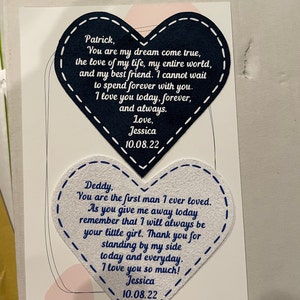 Patrick,
You are my dream come true,
the love of my life, my entire world,
and my best friend. I cannot wait
to spend forever with you.
I love you today, forever,
and always.
Love,
Jessica
10.08.22
Deddy,
You are the first man I ever loved.
As you give me away today
remember that I will always be
your little girl. Thank you for
standing by my side
today and everyday.
I love you so much!
Jessica
10.08.22